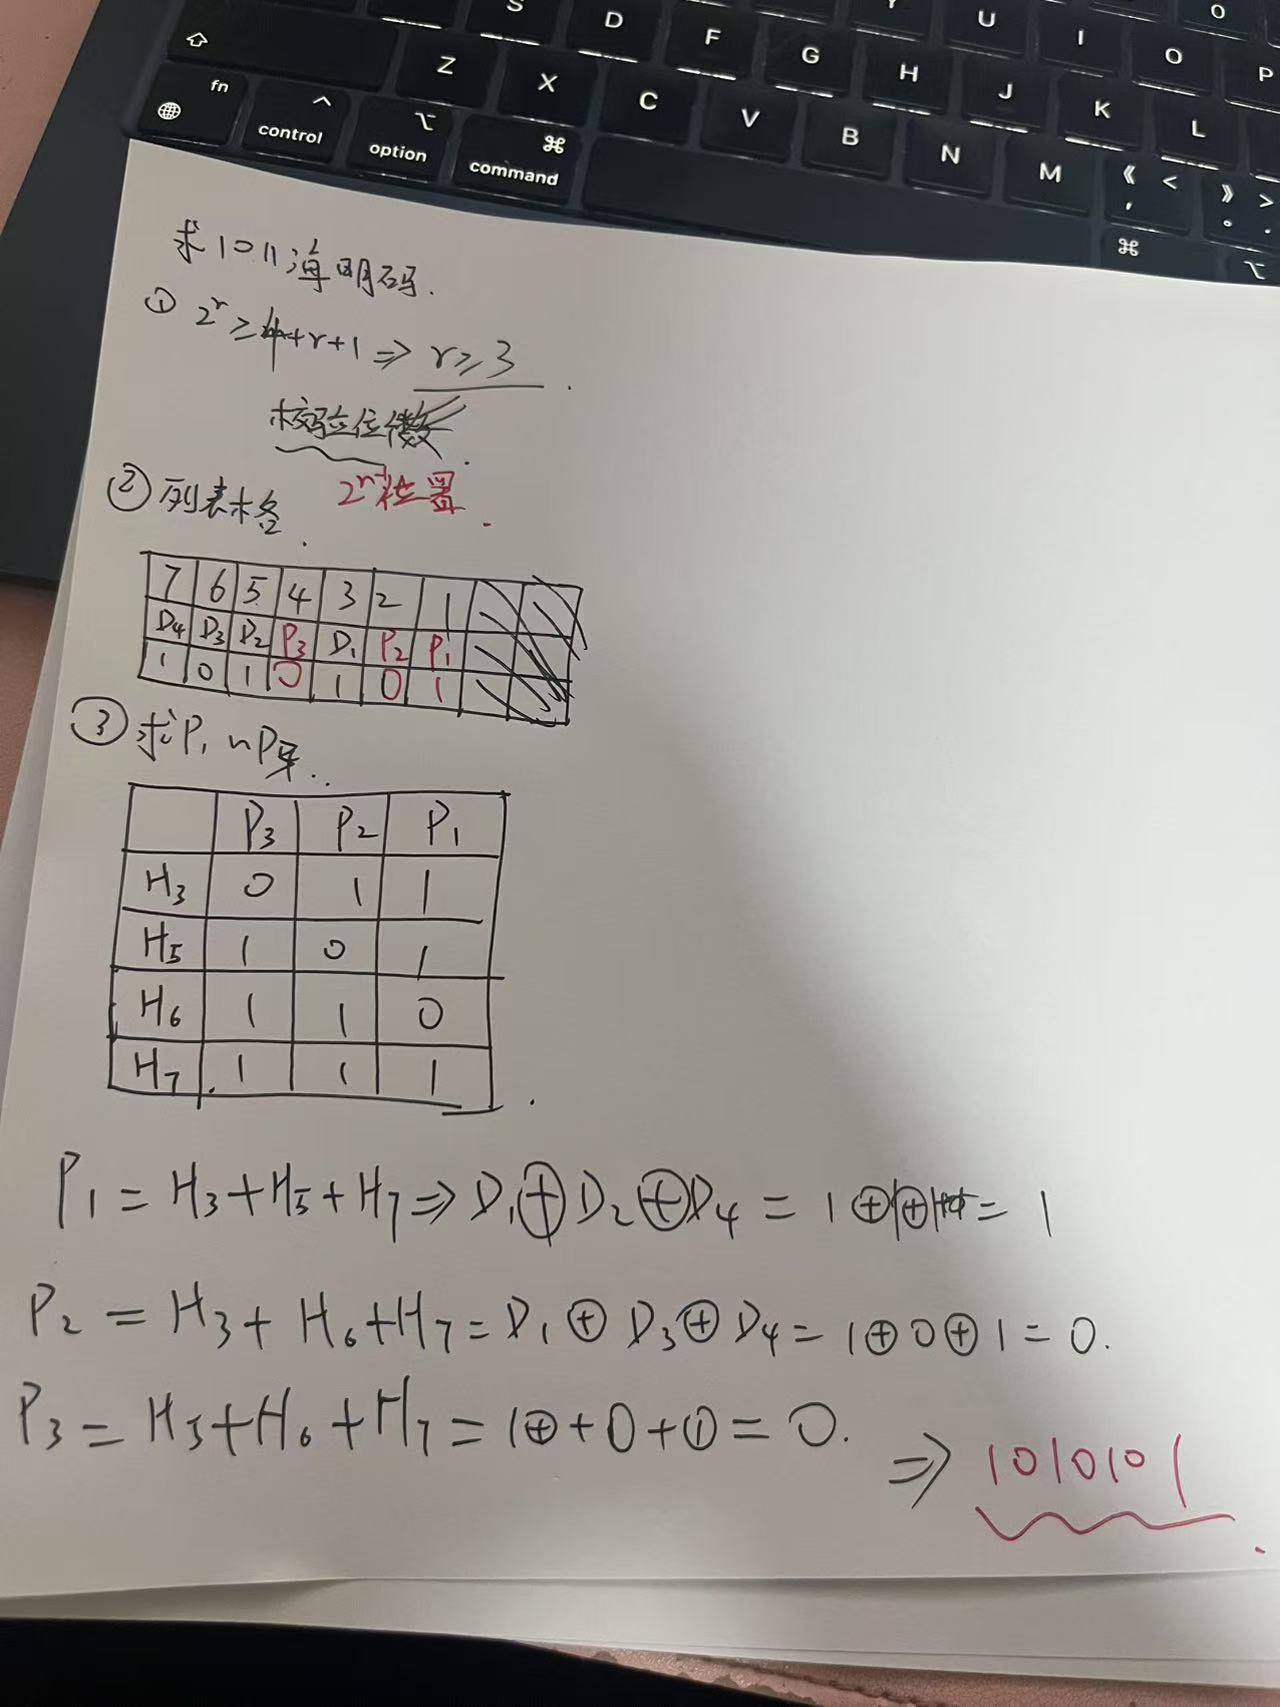 S D F G H J K L
Y U I O P
Z X C V B N M 《 < , 》 > 。 .
fn control ^ option ⌥ command ⌘ ⌘ ⌥
求1011海明码.
① 2^r ≥ 4+r+1 => r≥3.
校验位数.
② 列表格. 2^(n-1)位置.
7 6 5 4 3 2 1
D4 D3 D2 P3 D1 P2 P1
1 0 1 0 1 0 1
③ 求P1
P3 P2 P1
H3 0 1 1
H5 1 0 1
H6 1 1 0
H7 1 1 1
P1 = H3+H5+H7 => D1⊕D2⊕D4 = 1⊕1⊕1 = 1
P2 = H3+H6+H7 = D1⊕D3⊕D4 = 1⊕0⊕1 = 0.
P3 = H5+H6+H7 = 1⊕+0+① = 0.
=> 1010101.